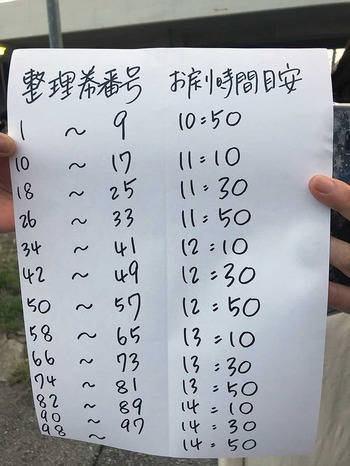 整理券番号 お戻り時間目安
1 ~ 9 10:50
10 ~ 17 11:10
18 ~ 25 11:30
26 ~ 33 11:50
34 ~ 41 12:10
42 ~ 49 12:30
50 ~ 57 12:50
58 ~ 65 13:10
66 ~ 73 13:30
74 ~ 81 13:50
82 ~ 89 14:10
90 ~ 97 14:30
98 ~ 14:50